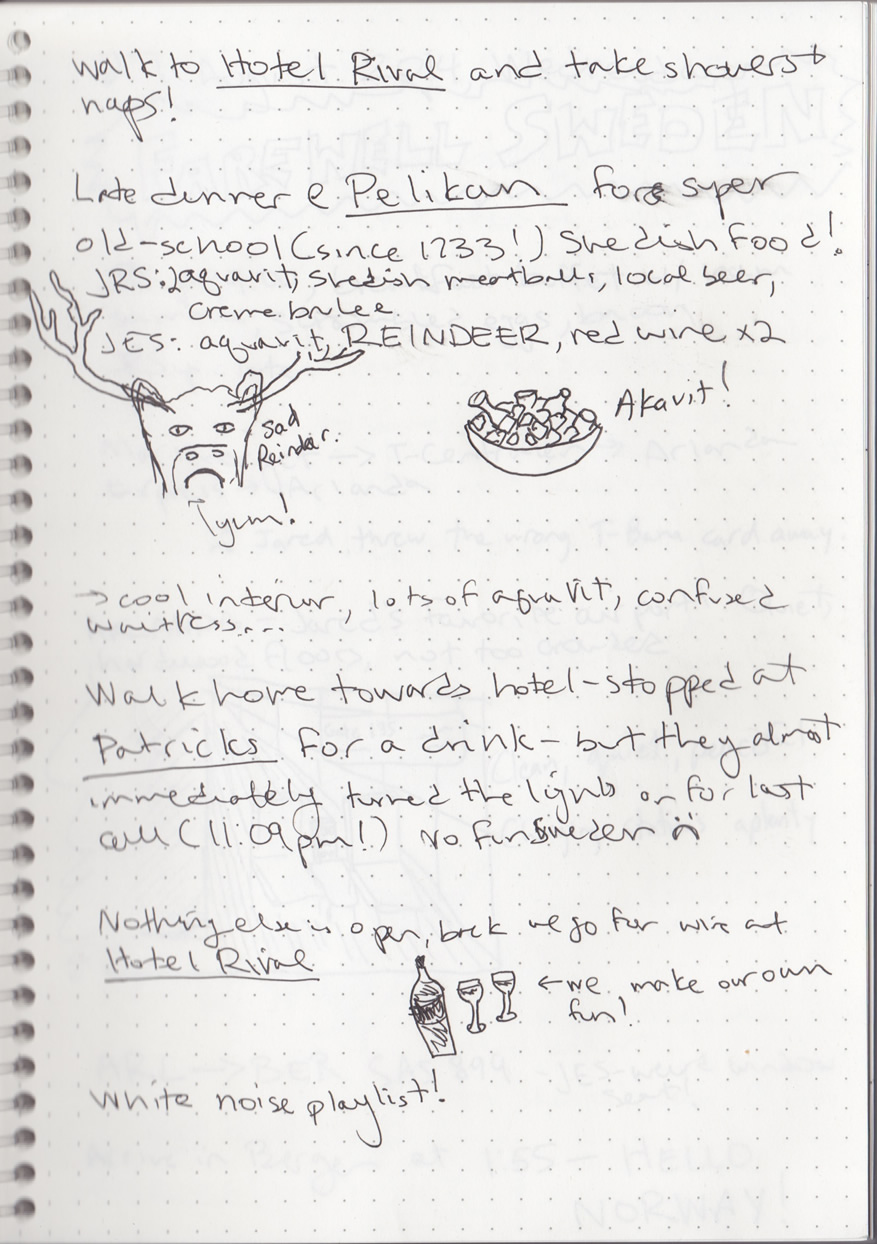 walk to Hotel Rival and take showers +
naps!
Late dinner @ Pelikan for super
old-school (since 1733!) Swedish food!
JRS: aquavit, swedish meatballs, local beer,
creme brulee
JES: aquavit, REINDEER, red wine x2
Sad
Reindeer.
Akavit!
yum!
→ cool interior, lots of aquavit, confused
waitress...
Walk home towards hotel - stopped at
Patricks for a drink - but they almost
immediately turned the lights on for last
call (11:09pm!) No fun Sweden :(
Nothing else is open, back we go for wine at
Hotel Rival
← we make our own
fun!
White noise playlist!